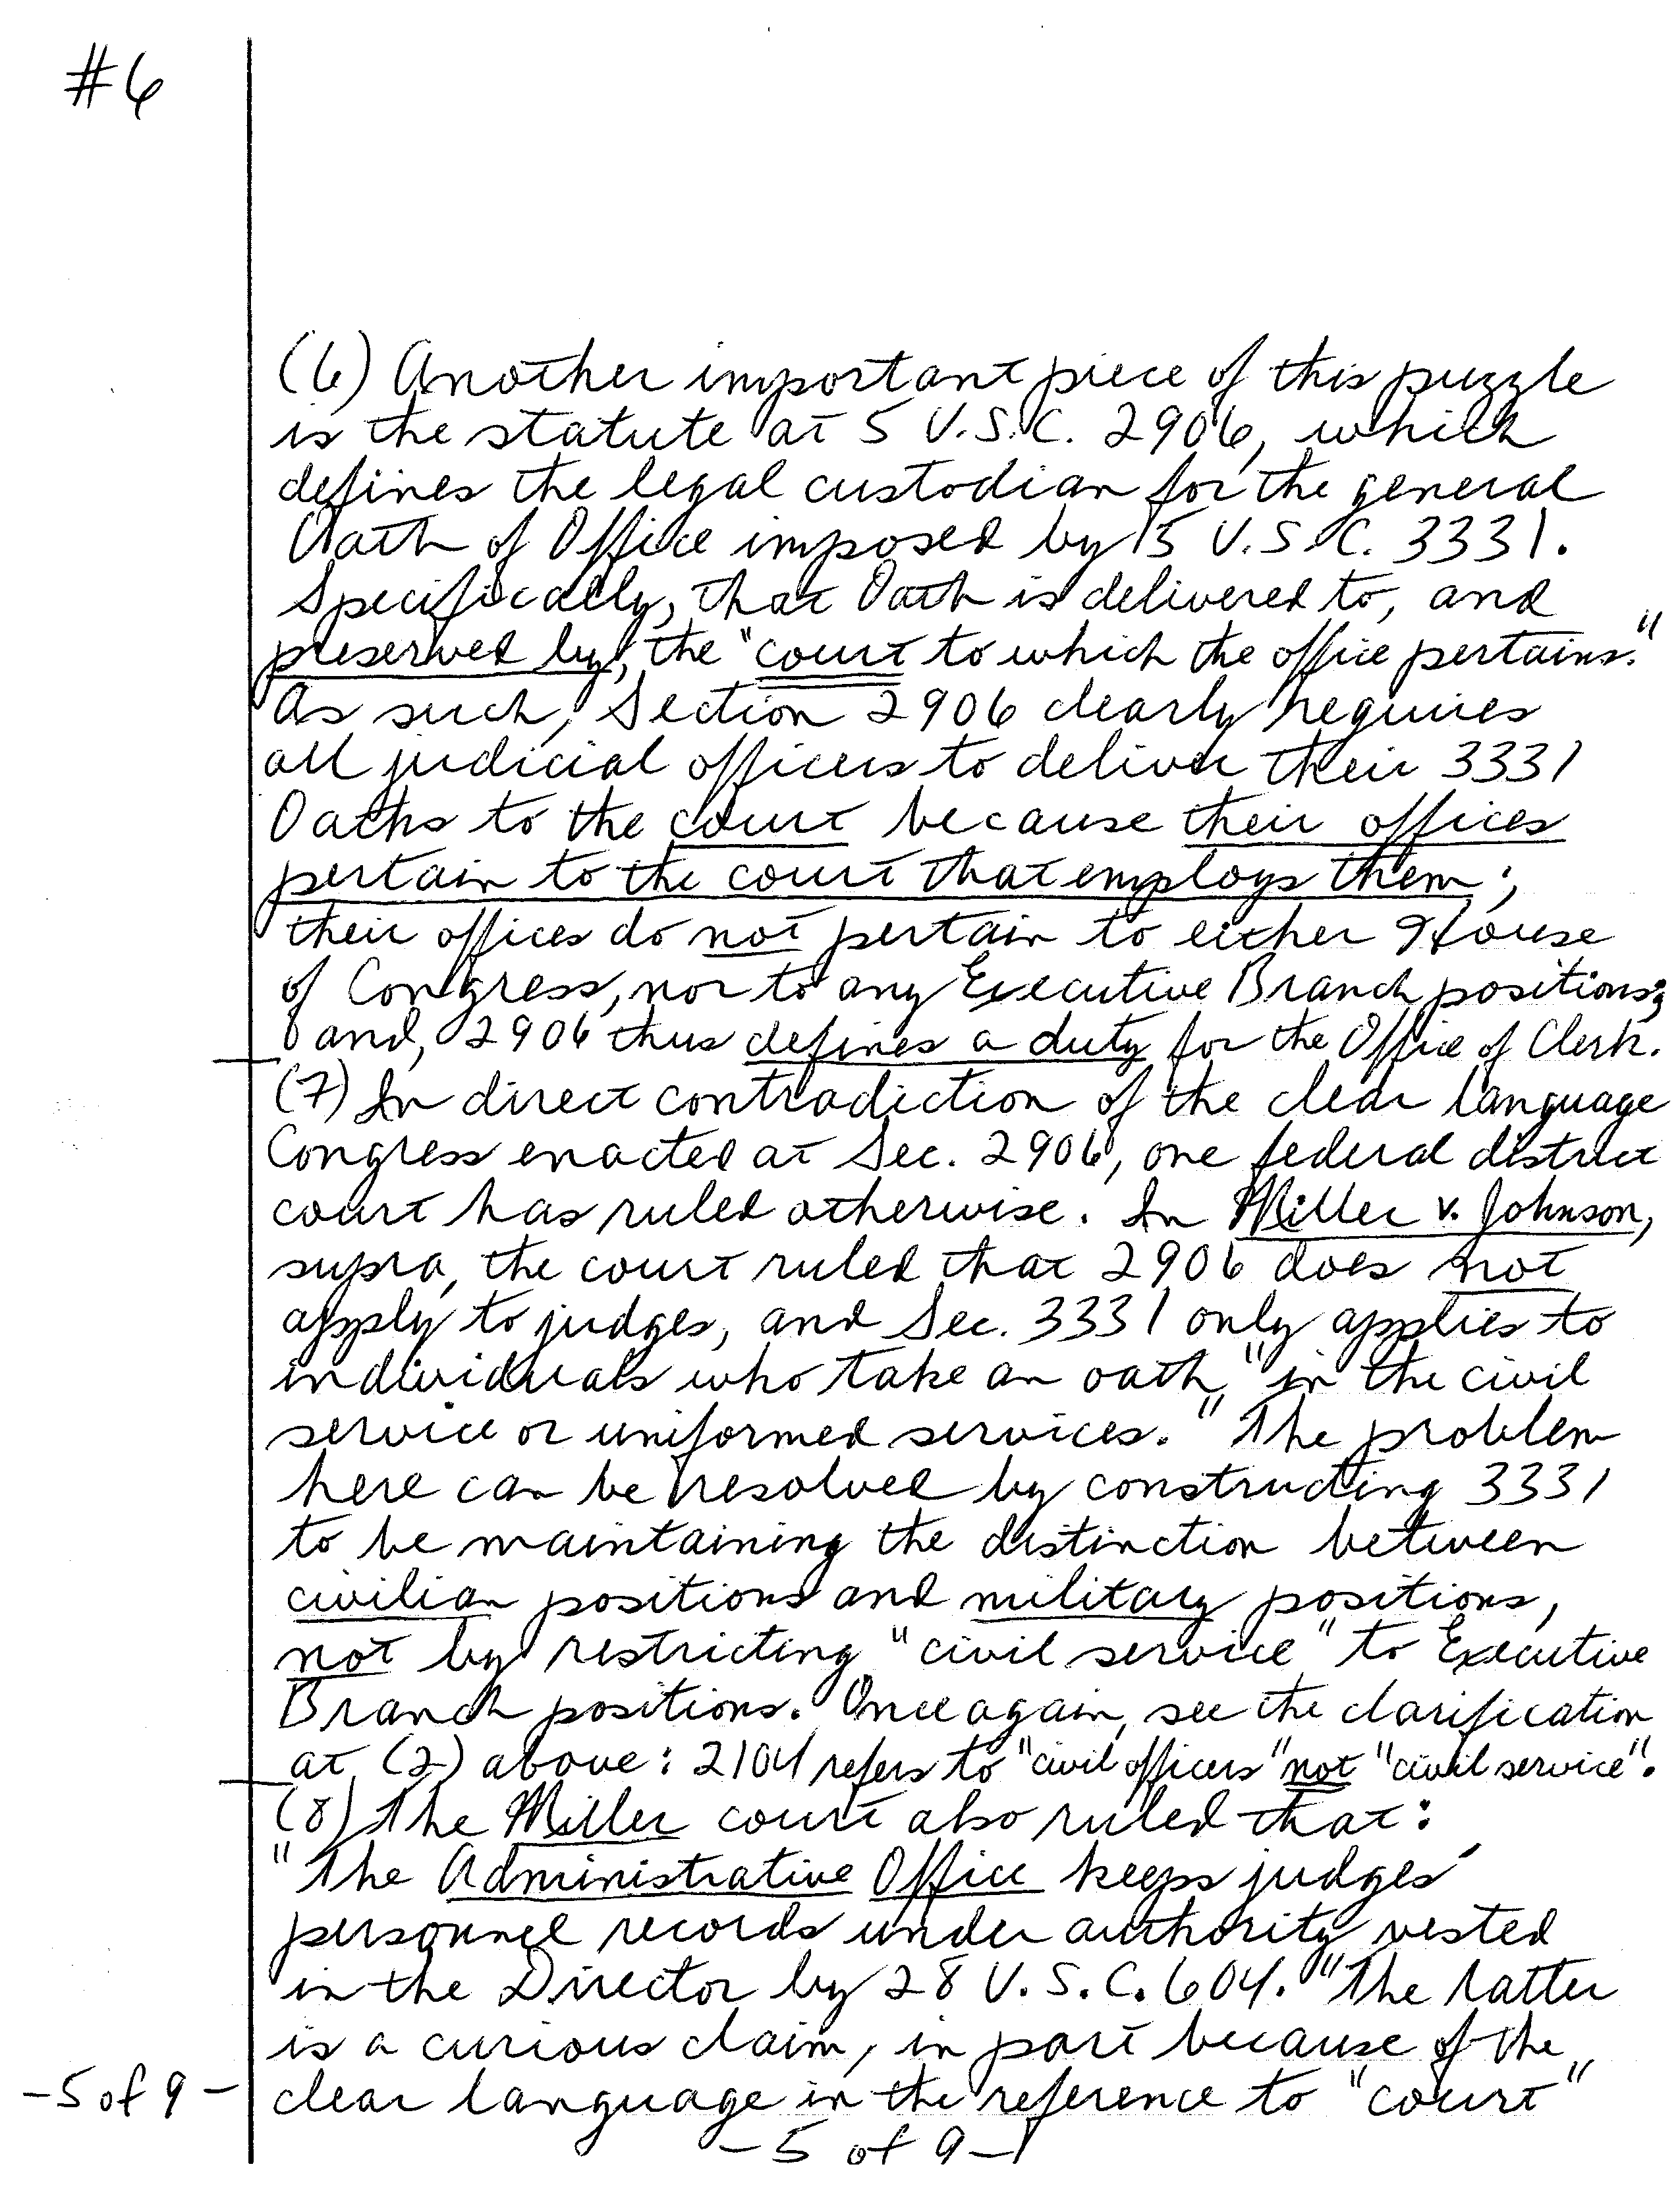 #6
(6) Another important piece of this puzzle
is the statute at 5 U.S.C. 2906, which
defines the legal custodian for the general
Oath of Office imposed by 5 U.S.C. 3331.
Specifically, that Oath is delivered to, and
preserved by, the "court to which the office pertains."
As such, Section 2906 clearly requires
all judicial officers to deliver their 3331
Oaths to the court because their offices
pertain to the court that employs them;
their offices do not pertain to either House
of Congress, nor to any Executive Branch positions;
and, 2906 thus defines a duty for the Office of Clerk.
(7) In direct contradiction of the clear language
Congress enacted at Sec. 2906, one federal district
court has ruled otherwise. In Miller v. Johnson,
supra, the court ruled that 2906 does not
apply to judges, and Sec. 3331 only applies to
individuals who take an oath "in the civil
service or uniformed services." The problem
here can be resolved by constructing 3331
to be maintaining the distinction between
civilian positions and military positions,
not by restricting "civil service" to Executive
Branch positions. Once again, see the clarification
at (2) above: 2104 refers to "civil officers" not "civil service".
(8) The Miller court also ruled that:
"The Administrative Office keeps judges'
personnel records under authority vested
in the Director by 28 U.S.C. 604." The latter
is a curious claim, in part because of the
clear language in the reference to "court"
-5 of 9-
-5 of 9-